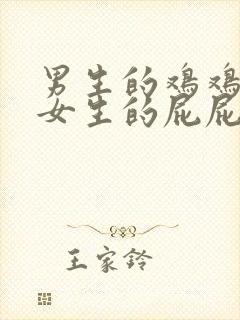 男生的鸡鸡
女生的屁屁
王家铃